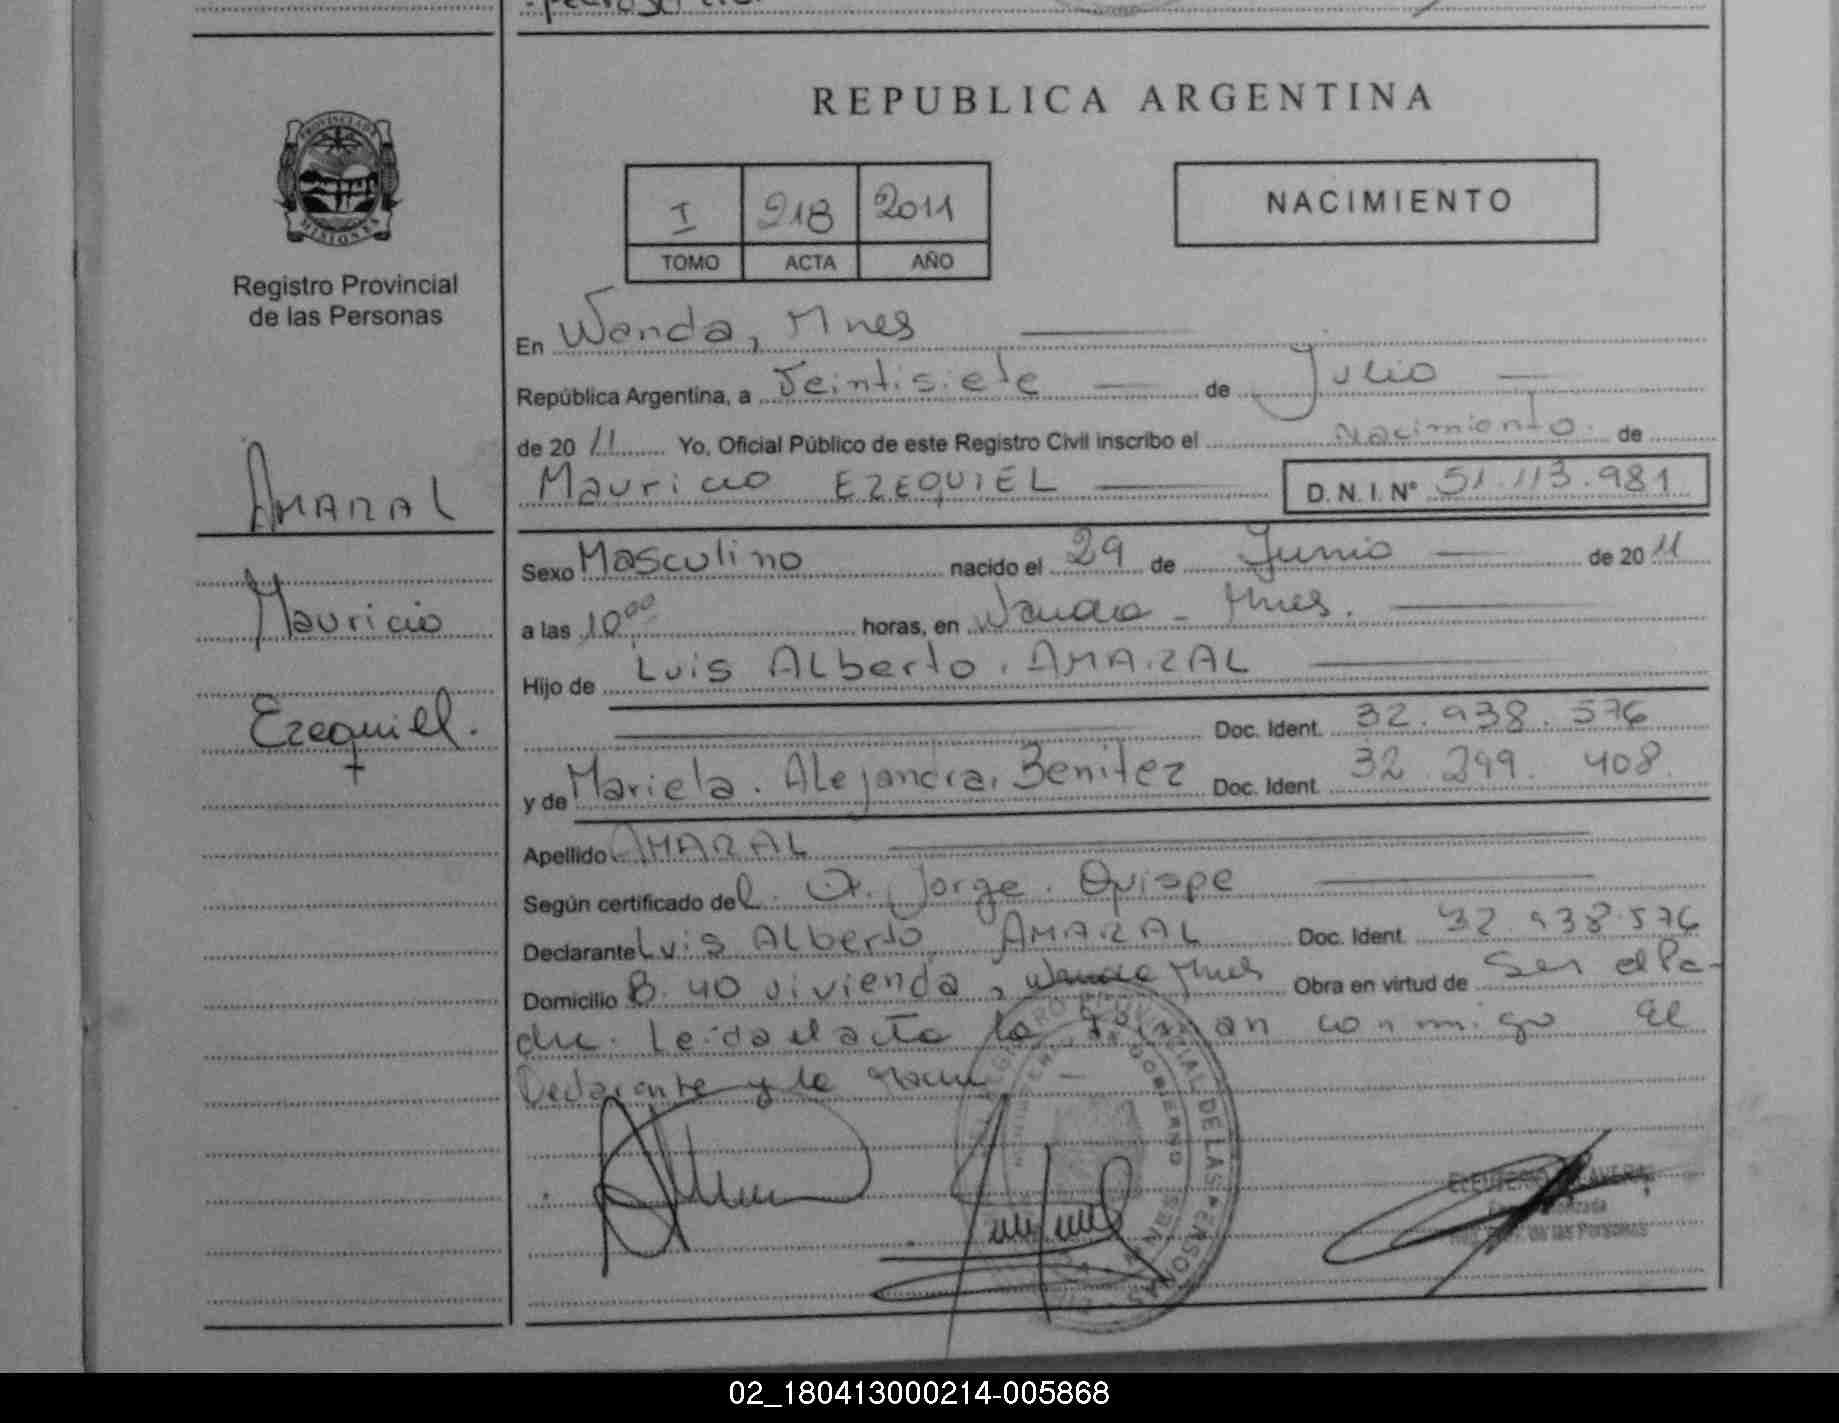 REPUBLICA ARGENTINA
PROVINCIA DE
MISIONES
Registro Provincial
de las Personas
I 218 2011
TOMO ACTA AÑO
NACIMIENTO
En Wanda, Mnes
República Argentina, a Veintisiete de Julio
de 20 11 Yo, Oficial Público de este Registro Civil inscribo el Nacimiento de
Mauricio EZEQUIEL D.N.I. Nº 51.113.981
AMARAL
Mauricio
Ezequiel.
Sexo Masculino nacido el 29 de Junio de 20 11
a las 10 00 horas, en Wanda - Mnes.
Hijo de Luis ALberto. AMARAL
Doc. Ident. 32.938.576
y de Mariela. Alejandra. Benitez Doc. Ident. 32.299.408
Apellido AMARAL
Según certificado del Dr. Jorge. Quispe
Declarante Luis ALberto AMARAL Doc. Ident. 32.938.576
Domicilio B. 40 vivienda, Wanda Mnes Obra en virtud de Ser el Pa-
dre. Leida el acta la firman conmigo el
Declarante y la
REGISTRO PROVINCIAL DE LAS PERSONAS
GOBIERNO
ELEUTERIO
de las Personas
02_180413000214-005868